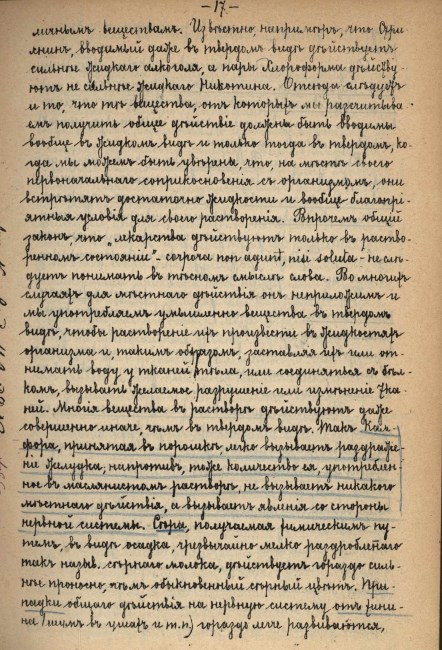 -17.-
личнымъ веществамъ. Извѣстно, напримѣръ, что Стри-
хнинъ, вводимый даже въ твердомъ видѣ дѣйствуетъ
сильнѣе жидкаго алкоголя, а пары Хлороформа дѣйству-
ютъ не сильнѣе жидкаго Никотина. Отсюда слѣдуетъ
и то, что тѣ вещества, отъ которыхъ мы разсчитыва-
емъ получить общее дѣйствіе должны быть вводимы
вообще въ жидкомъ видѣ и только тогда въ твердомъ, ко-
гда мы можемъ быть увѣрены, что, на мѣстѣ своего
первоначальнаго соприкосновенія съ организмомъ, они
встрѣтятъ достаточно жидкости и вообще благопрі-
ятныя условія для своего растворенія. Впрочемъ общій
законъ, что „лекарства дѣйствуютъ только въ раство-
ренномъ состояніи" - corpora non agunt, nisi soluta - не слѣ-
дуетъ понимать въ тѣсномъ смыслѣ слова. Во многихъ
случаяхъ для мѣстнаго дѣйствія онъ непримѣнимъ и
мы употребляемъ умышленно вещества въ твердомъ
видѣ, чтобы раствореніе ихъ произвести въ жидкостяхъ
организма и, такимъ образомъ, заставляя ихъ или от-
нимать воду у тканей тѣла, или соединяться съ бѣл-
комъ, вызвать желаемое разрушеніе или измѣненіе тка-
ней. Многія вещества въ растворѣ дѣйствуютъ даже
совершенно иначе, чѣмъ въ твердомъ видѣ. Такъ Кам-
фора, принятая въ порошкѣ, легко вызываетъ раздраже-
ніе желудка; напротивъ, тоже количество ея, употреблен-
ное въ маслянистомъ растворѣ, не вызываетъ никакого
мѣстнаго дѣйствія, а вызываетъ явленія со стороны
нервной системы. Сѣра, получаемая химическимъ пу-
темъ, въ видѣ осадка, чрезвычайно мелко раздробленнаго
такъ назыв. сѣрнаго молока, дѣйствуетъ гораздо силь-
нѣе проносно, чѣмъ обыкновенный сѣрный цвѣтъ. При-
падки общаго дѣйствія на нервную систему отъ хини-
на (шумъ въ ушахъ и т.п.) гораздо легче развиваются,